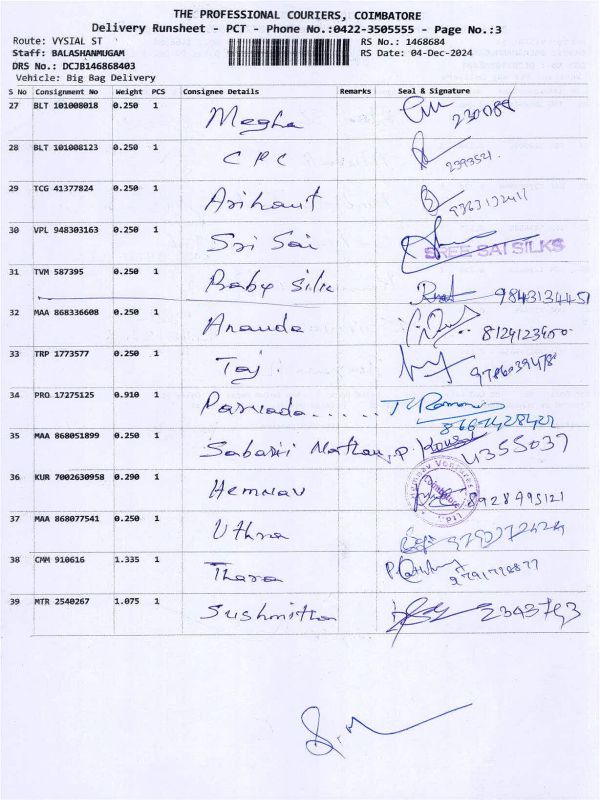 THE PROFESSIONAL COURIERS, COIMBATORE
Delivery Runsheet - PCT - Phone No.:0422-3505555 - Page No.:3
Route: VYSIAL ST RS No.: 1468684
Staff: BALASHANMUGAM RS Date: 04-Dec-2024
DRS No.: DCJB146868403
Vehicle: Big Bag Delivery
S No Consignment No Weight PCS Consignee Details Remarks Seal & Signature
27 BLT 101008018 0.250 1 Megha
28 BLT 101008123 0.250 1 CPC 2393521
29 TCG 41377824 0.250 1 Arihant 9363132411
30 VPL 948303163 0.250 1 Sri Sai SREE SAI SILKS
31 TVM 587395 0.250 1 Baby Silk 9843134451
32 MAA 868336608 0.250 1 Ananda 8124123900
33 TRP 1773577 0.250 1 Taj 9786039478
34 PRO 17275125 0.910 1 Parvada......
35 MAA 868051899 0.250 1 Sabarii Nathan, P. 4355037
36 KUR 7002630958 0.290 1 Hemnav 8928495121
37 MAA 868077541 0.250 1 Uthra
38 CMM 910616 1.335 1 Thara
39 MTR 2540267 1.075 1 Sushmitha 2343793